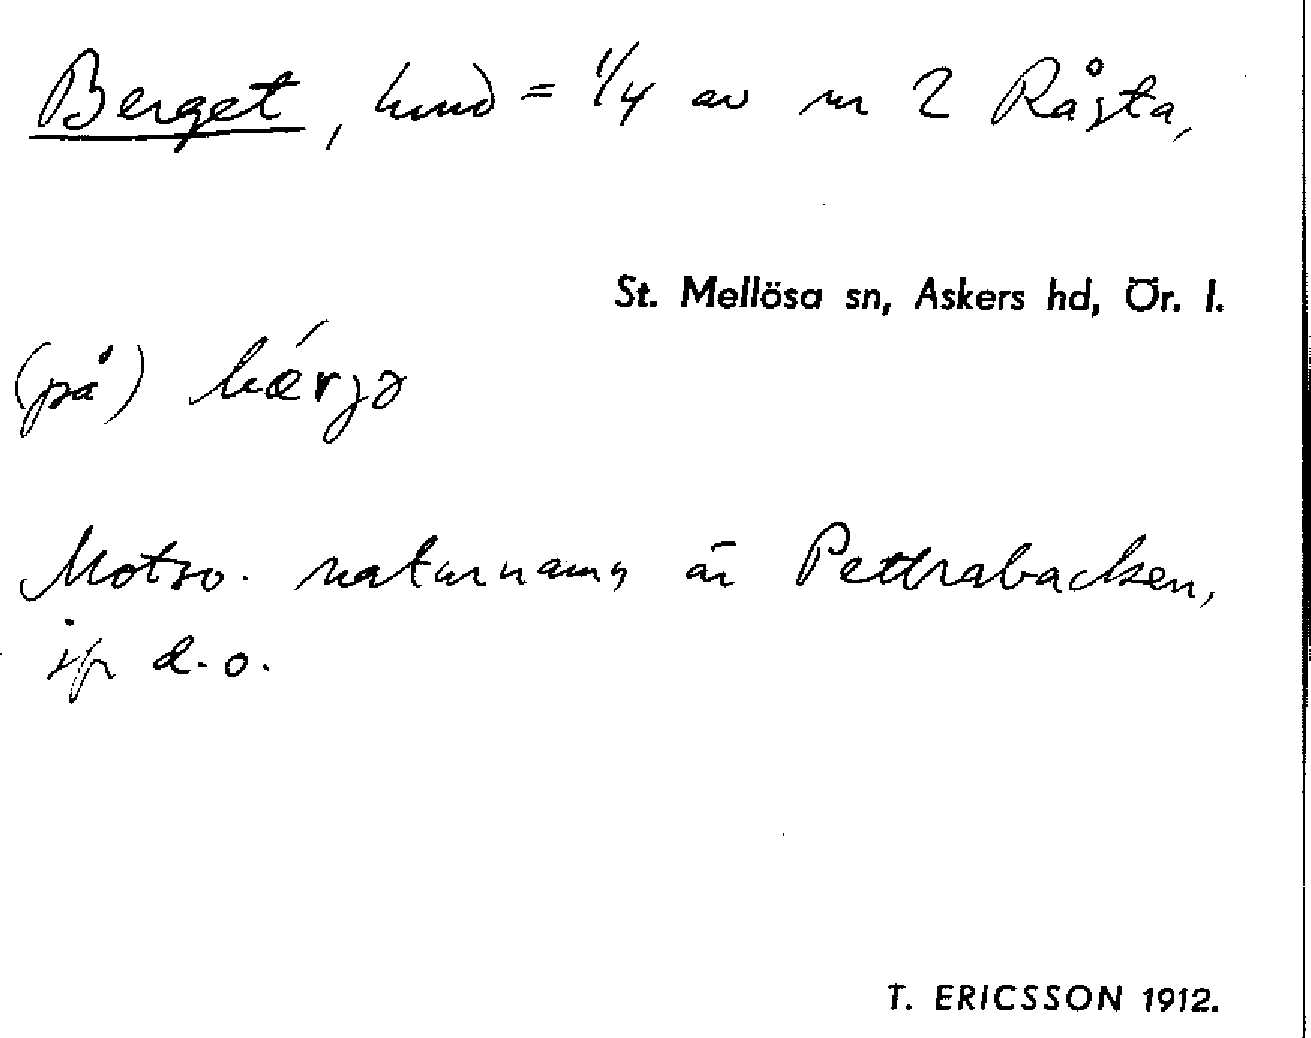 Berget, hmd = 1/4 av nr 2 Råsta,
St. Mellösa sn, Askers hd, Ör. l.
(på) bǽrjə
Motsv. naturnamn är Pettrabacken,
jfr d. o.
T. ERICSSON 1912.